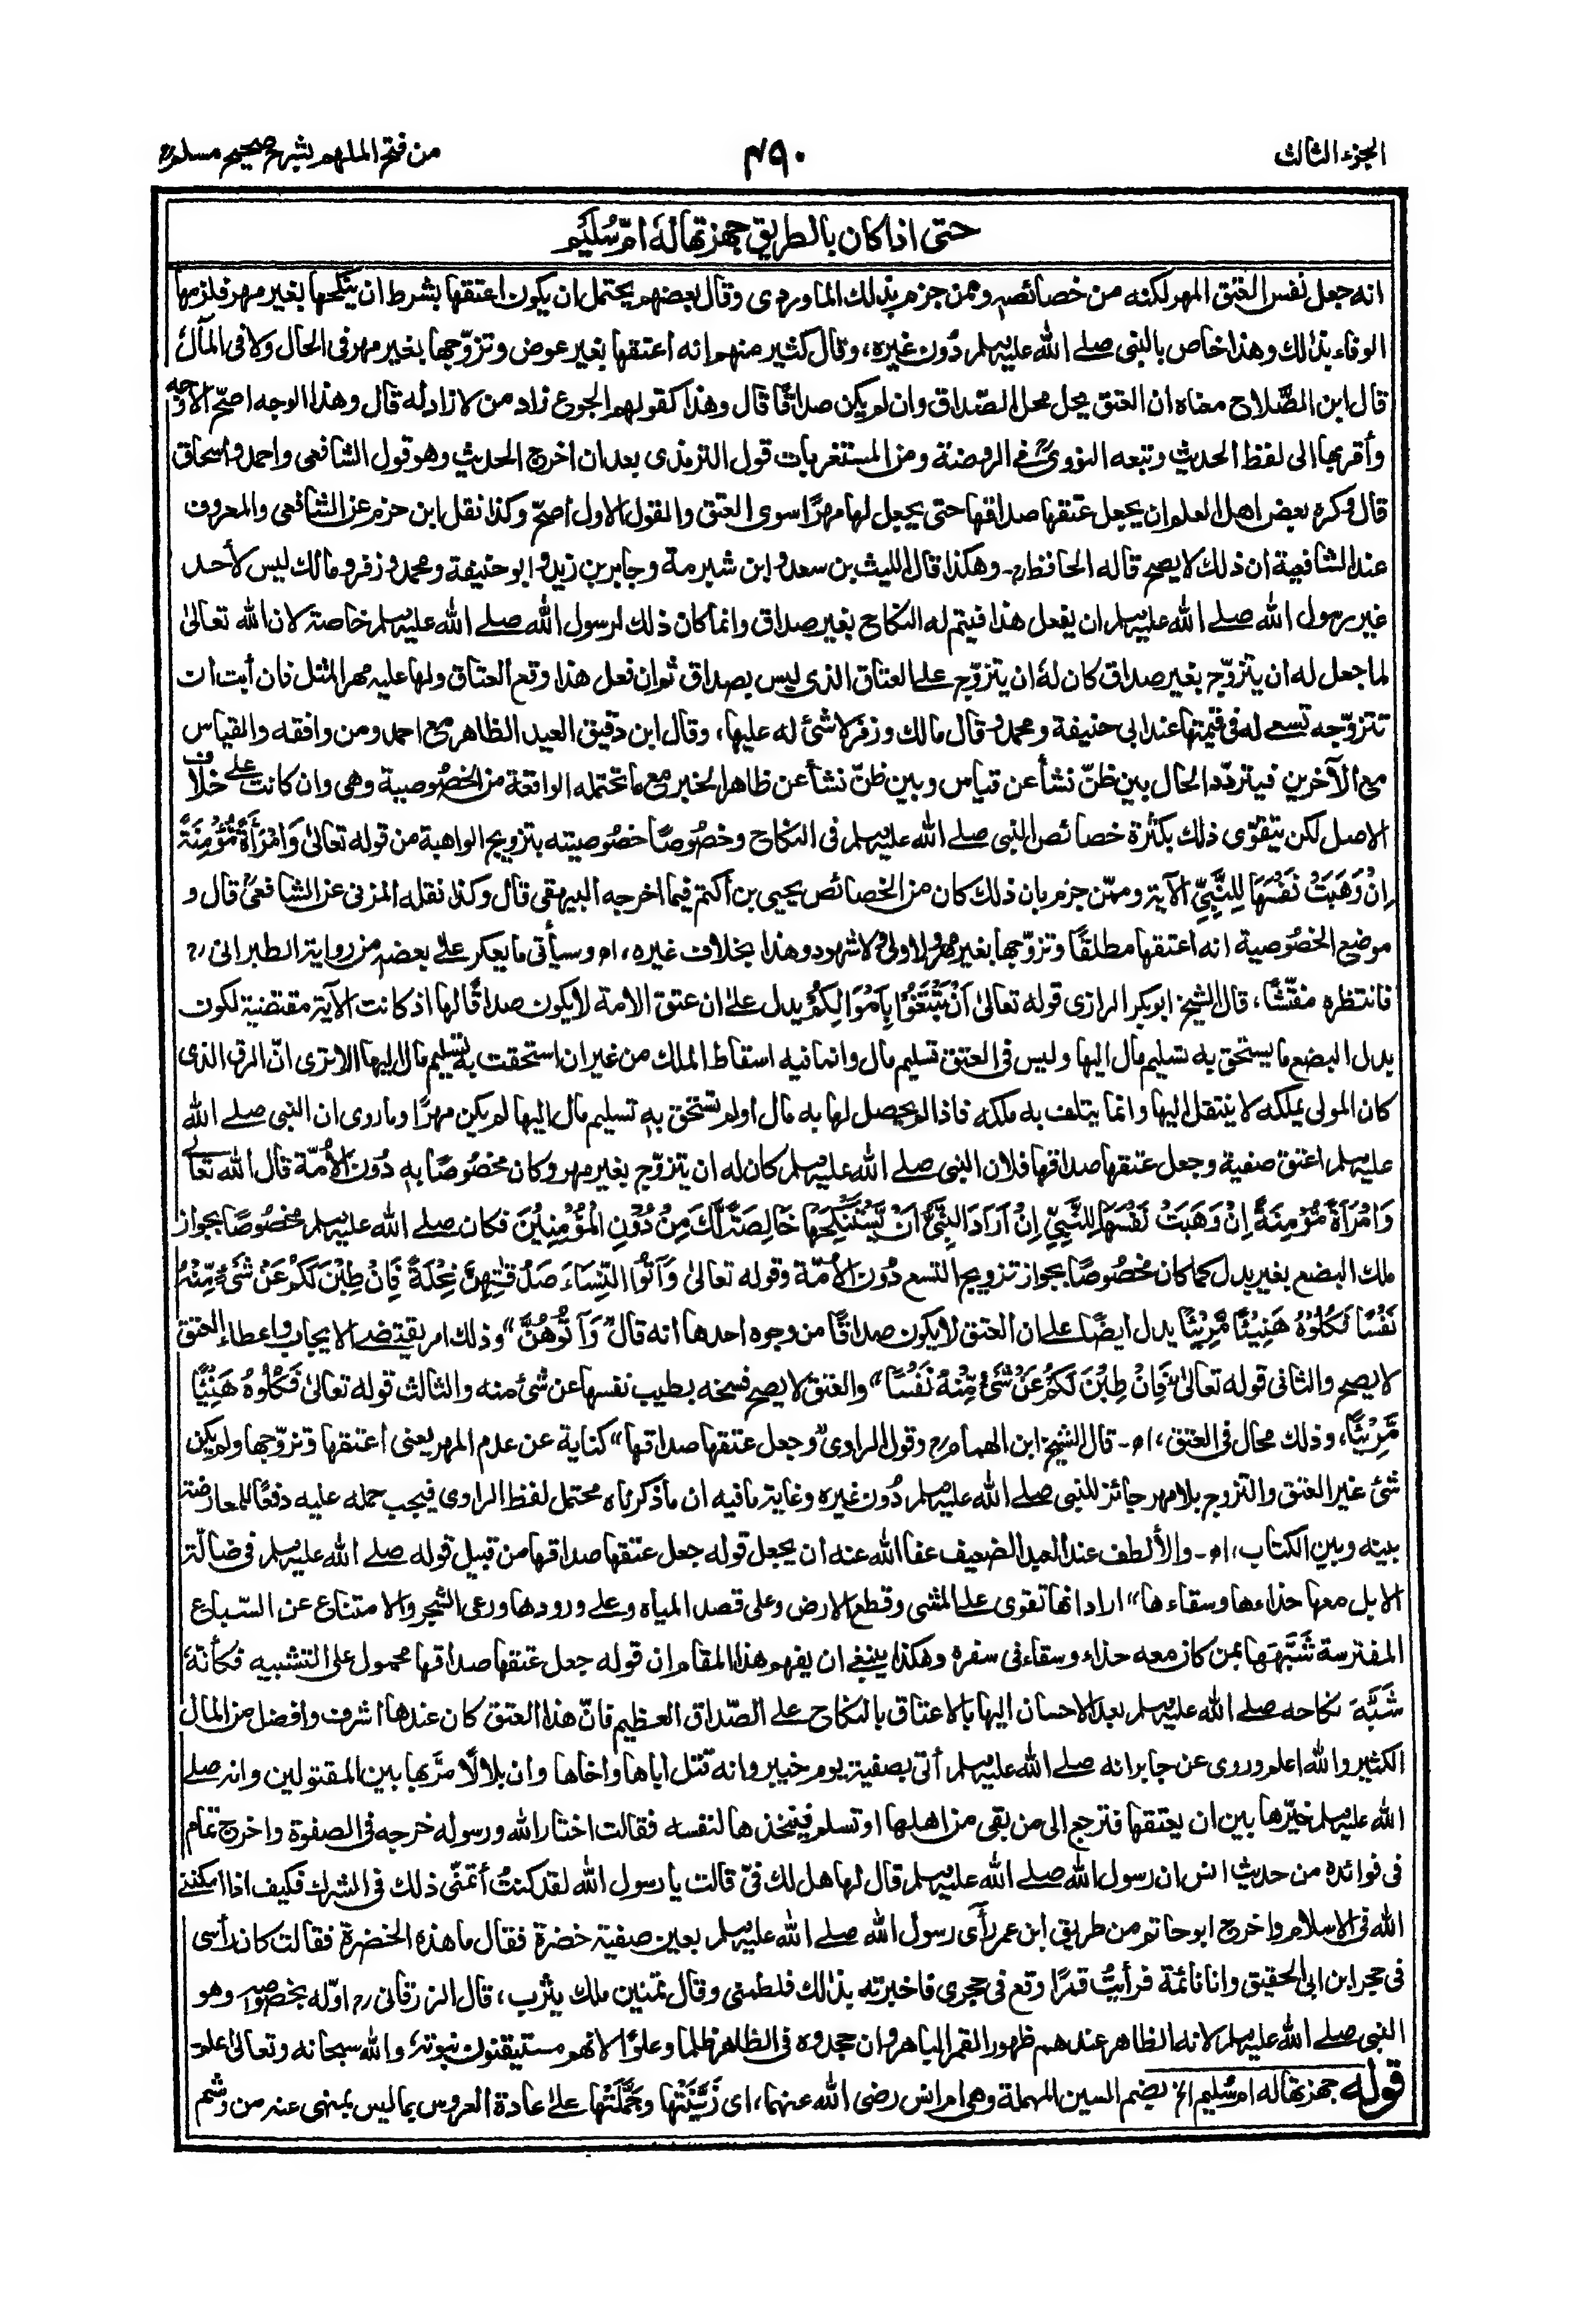 الجزء الثالث
٤٩٠
من فتح الملهم بشرح صحيح مسلم
حتى اذا كان بالطريق جهزتها لهٗ امّ سُلَيم
انه جعل نفس العتق المهر لكنه من خصائصه وممن جزم بذلك الماوردى وقال بعضهم يحتمل ان يكون اعتقها بشرط ان ينكحها بغير مهر فلزمها
الوفاء بذلك وهذا خاص بالنبى صلے الله عليه وسلم دُون غيره، وقال كثير منهم انه اعتقها بغير عوض وتزوّجها بغير مهر فى الحال ولا فى المآل
قال ابن الصَّلاح معناه ان العتق يحل محل الصّداق وان لم يكن صداقًا قال وهذا كقولهم الجوع زاد من لا زاد له قال وهذا الوجه اصحّ الاوجه
وأقربها الى لفظ الحديث وتبعه النووى فے الروضة ومن المستغربات قول الترمذى بعد ان اخرج الحديث وهو قول الشافعى واحمد واسحاق
قال وكره بعض اهل العلم ان يجعل عتقها صداقها حتى يجعل لها مهرًا سوى العتق والقول الاول أصحّ وكذا نقل ابن حزم عن الشافعى والمعروف
عند الشافعية ان ذلك لا يصح قاله الحافظ۔ وهكذا قال الليث بن سعد وابن شبرمة وجابر بن زيد وابو حنيفة ومحمد وزفر ومالك ليس لأحد
غير رسول الله صلے الله عليه وسلم ان يفعل هذا فيتم له النكاح بغير صداق وانما كان ذلك لرسول الله صلے الله عليه وسلم خاصة لان الله تعالىٰ
لما جعل له ان يتزوّج بغير صداق كان لهٗ ان يتزوّج علے العتاق الذى ليس بصداق ثم ان فعل هذا وقع العتاق ولها عليه مهر المثل فان أبت ان
تتزوّجه تسعے له فى قيمتها عند ابى حنيفة ومحمد وقال مالك وزفر لا شئ له عليها، وقال ابن دقيق العيد الظاهر مع احمد ومن وافقه والقياس
مع الآخرين فيتردّد الحال بين ظنّ نشأ عن قياس وبين ظنّ نشأ عن ظاهر الخبر مع ما تحتمله الواقعة من الخصوصية وهى وان كانت علے خلاف
الاصل لكن يتقوّى ذلك بكثرة خصائص النبى صلے الله عليه وسلم فى النكاح وخصُوصًا خصُوصيته بتزويج الواهبة من قوله تعالىٰ وَامْرَأَةً مُّؤْمِنَةً
اِنْ وَهَبَتْ نَفْسَهَا لِلنَّبِيِّ الآية وممّن جزم بان ذلك كان من الخصائص يحيى بن أكثم فيما اخرجه البيهقى قال وكذا نقله المزنى عن الشافعى قال و
موضع الخصُوصية انه اعتقها مطلقًا وتزوّجها بغير مهر ولا ولى ولا شهود وهذا بخلاف غيره، اھ وسيأتى ما يعكر علے بعضه من رواية الطبرانى
فانتظره مفتّشًا، قال الشيخ ابوبكر الرازى قوله تعالىٰ اَنْ تَبْتَغُوْا بِاَمْوَالِكُمْ يدل علىٰ ان عتق الامة لا يكون صداقًا لها اذ كانت الآية مقتضية لكون
بدل البضع ما يستحق به تسليم مال اليها وليس فى العتق تسليم مال وانما فيه اسقاط الملك من غير ان استحقت به تسليم مال اليها الا ترى انّ الرق الذى
كان المولى يملكه لا ينتقل اليها وانما يتلف به ملكه فاذا لم يحصل لها به مال او لم تستحق به تسليم مال اليها لم يكن مهرًا وما روى ان النبى صلے الله
عليه وسلم اعتق صفية وجعل عتقها صداقها فلان النبى صلے الله عليه وسلم كان له ان يتزوّج بغير مهر وكان مخصُوصًا به دُون الأمّة قال الله تعالىٰ
وَامْرَأَةً مُّؤْمِنَةً اِنْ وَهَبَتْ نَفْسَهَا لِلنَّبِيِّ اِنْ اَرَادَ النَّبِيُّ اَنْ يَّسْتَنْكِحَهَا خَالِصَةً لَّكَ مِنْ دُوْنِ الْمُؤْمِنِيْنَ فكان صلے الله عليه وسلم مخصُوصًا بجواز
ملك البضع بغير بدل كما كان مخصُوصًا بجواز تزويج التسع دُون الأمّة وقوله تعالىٰ وَآتُوا النِّسَاءَ صَدُقٰتِهِنَّ نِحْلَةً فَاِنْ طِبْنَ لَكُمْ عَنْ شَىْءٍ مِّنْهُ
نَفْسًا فَكُلُوْهُ هَنِيْئًا مَّرِيْئًا يدل ايضًا علے ان العتق لا يكون صداقًا من وجوه احدها انه قال "وَآتُوهُنَّ" وذلك امر يقتضے الايجاب واعطاء العتق
لا يصح والثانى قوله تعالىٰ "فَاِنْ طِبْنَ لَكُمْ عَنْ شَىْءٍ مِّنْهُ نَفْسًا" والعتق لا يصح فسخه بطيب نفسها عن شئ منه والثالث قوله تعالىٰ فَكُلُوْهُ هَنِيْئًا
مَّرِيْئًا، وذلك محال فى العتق، اھ۔ قال الشيخ ابن الهمام وقول الراوى "وجعل عتقها صداقها" كناية عن عدم المهر يعنى اعتقها وتزوّجها ولم يكن
شئ غير العتق والتزوج بلا مهر جائز للنبى صلے الله عليه وسلم دُون غيره وغاية ما فيه ان ما ذكرناه محتمل لفظ الراوى فيجب حمله عليه دفعًا للمعارضة
بينه وبين الكتاب، اھ۔ والألطف عند العبد الضعيف عفا الله عنه ان يجعل قوله جعل عتقها صداقها من قبيل قوله صلے الله عليه وسلم فى ضالة
الابل معها حذاءها وسقاءها" اراد انها تقوى علے المشى وقطع الارض وعلى قصد المياه وعلے ورودها ورعى الشجر والامتناع عن السّباع
المفترسة شَبَّهَهَا بمن كان معه حذاء وسقاء فى سفره وهكذا ينبغى ان يفهم هذا المقام ان قوله جعل عتقها صداقها محمول على التشبيه فكأنهٗ
شَبَّهَ نكاحه صلے الله عليه وسلم بعد الاحسان اليها بالاعتاق بالنكاح علے الصّداق العظيم فانّ هذا العتق كان عندها اشرف وأفضل من المال
الكثير والله اعلم وروى عن جابر انه صلے الله عليه وسلم أتى بصفية يوم خيبر وانه قتل اباها واخاها وان بلالًا مرّ بها بين المقتولين وانه صلے
الله عليه وسلم خيّرها بين ان يعتقها فترجع الى من بقى من اهلها او تسلم فيتخذها لنفسه فقالت اختار الله ورسوله خرجه فى الصفوة واخرج تمام
فى فوائده من حديث انس ان رسول الله صلے الله عليه وسلم قال لها هل لك فىّ قالت يا رسول الله لقد كنتُ أتمنّى ذلك فى الشرك فكيف اذا امكننى
الله فى الاسلام واخرج ابوحاتم من طريق ابن عمر رأى رسول الله صلے الله عليه وسلم بعين صفية خضرة فقال ما هذه الخضرة فقالت كان رأسى
فى حجر ابن ابى الحقيق وانا نائمة فرأيتُ قمرًا وقع فى حجرى فاخبرته بذلك فلطمنى وقال تمنين ملك يثرب، قال الزرقانى اوّله بخصوصه وهو
النبى صلے الله عليه وسلم لانه الظاهر عندهم ظهور القمر الباهر وان جحدوه فى الظاهر ظلما وعلوًا لانهم مستيقنون نبوته، والله سبحانه وتعالىٰ اعلم
قوله جهزتها له ام سُليم الخ بضم السين المهملة وهى ام انس رضى الله عنهما، اى زَيَّنَتْهَا وجَمَّلَتْهَا علىٰ عادة العروس بما ليس بمنهى عنه من وشم